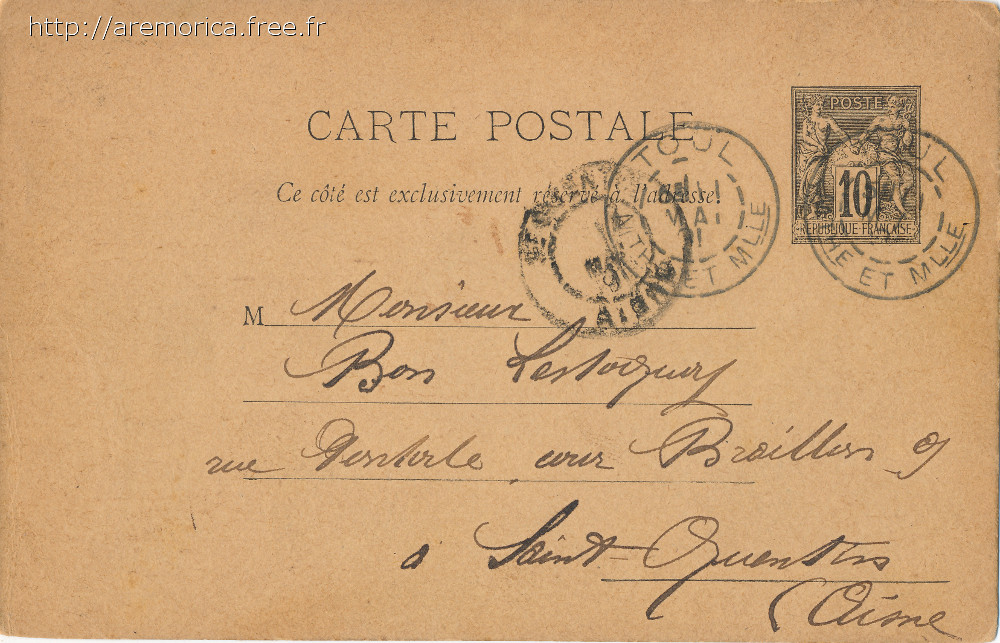 http://aremorica.free.fr
CARTE POSTALE
Ce côté est exclusivement réservé à l'adresse.
POSTE
10
REPUBLIQUE FRANÇAISE
TOUL
MAI
ET MLLE
TOUL
ET MLLE
MAI
91
M Monsieur
Bon
rue cour Braillon 9
à Saint-Quentin
(Aisne